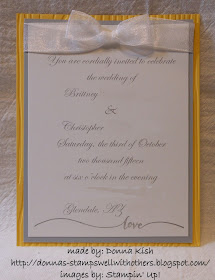 You are cordially invited to celebrate
the wedding of
Brittney
&
Christopher
Saturday, the third of October
two thousand fifteen
at six o'clock in the evening
Glendale, AZ
love
made by: Donna Kish
http://donnas-stampswellwithothers.blogspot.com/
images by: Stampin' Up!